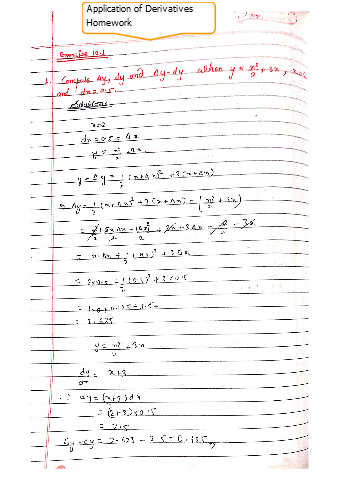 Application of Derivatives
Homework
Exercise 10.1
1. Compute Δy, dy and Δy-dy when y = x²/2 + 3x, x=2
and dx=0.5.
Solution:-
x=2
dx=0.5=Δx
y+Δy = 1/2 (x+Δx)² +3(x+Δx)
Δy = 1/2 (x+Δx)² +3(x+Δx) - (x²/2 + 3x)
= x.Δx + 1/2 (Δx)² + 3Δx
= 2x0.5 + 1/2 (0.5)² + 3x0.5
= 1.0+0.125+1.5
= 2.625
y = x²/2 +3x
dy/dx = x+3
∴ dy = (x+3)dx
= (2+3)x0.5
= 2.5
Δy-dy = 2.625 - 2.5 = 0.125